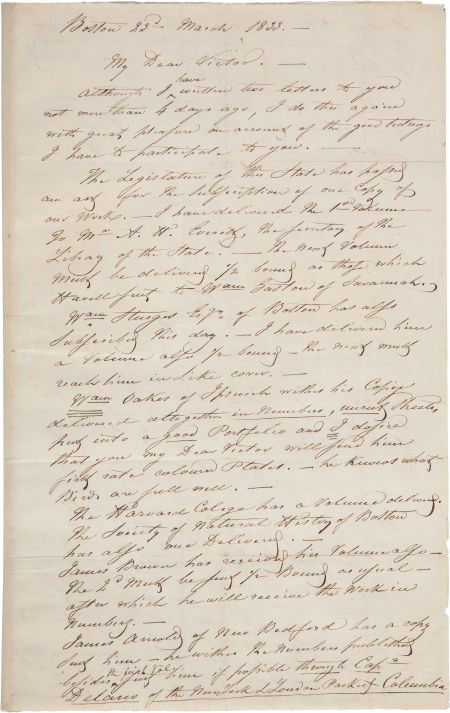 Boston 23d March 1833. —
My Dear Victor. —
Although I have written two letters to you
not more than 4 days ago, I do this again
with great pleasure on account of the good tidings
I have to participate to you. —
The Legislature of this State has passed
an act for the Subscription of one Copy of
our Work. — I have delivered the 1st Volume
To Mr A. H. Everett, the Secretary of the
Library of the State. — The next Volume
Must be delivered ½ bound as those which
Havell sent to Wam Gaston of Savannah.
Wam Sturges Esqr. of Boston has also
Subscribed this day. — I have delivered him
a Volume also ½ bound — the next must
reach him in like cover. —
Wam Oakes of Ipswich wishes his Copy
delivered altogether in Numbers, uncut Sheets
put into a good Portfolio and I desire
that you my Dear Victor will send him
first rate coloured Plates. — he knows what
Birds are full well. —
The Harvard College has a Volume delivd.
The Society of Natural History of Boston
has also one Delivered. —
James Brown has received his Volume also —
The 2d Must be sent ½ Bound as usual —
after which he will receive the Work in
Numbers. —
James Arnold of New Bedford has a copy
sent him — he wishes the Numbers published
besides the first Vol. sent him if possible through Capn
Delano of the New York & London Packet Columbia